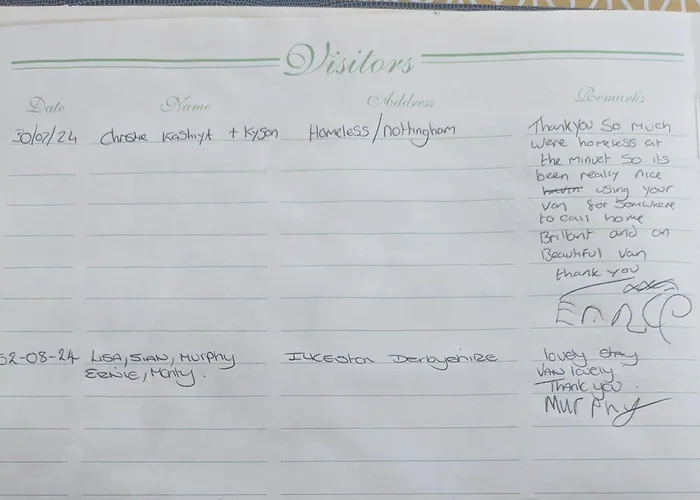 Visitors
Date Name Address Remarks
30/07/24 Christie Kashiyt + Kyson Homeless/nottingham
Thankyou So much
were homeless at
the minuet so its
been really nice
using your
van for Somwhere
to call home
Brillant and an
Beautiful van
thank you
52-08-24 LISA, SIAN, MURPHY ILKESton Derbyshize lovely stay
ERNIE, Monty. VAN lovely
Thank you.
Murphy